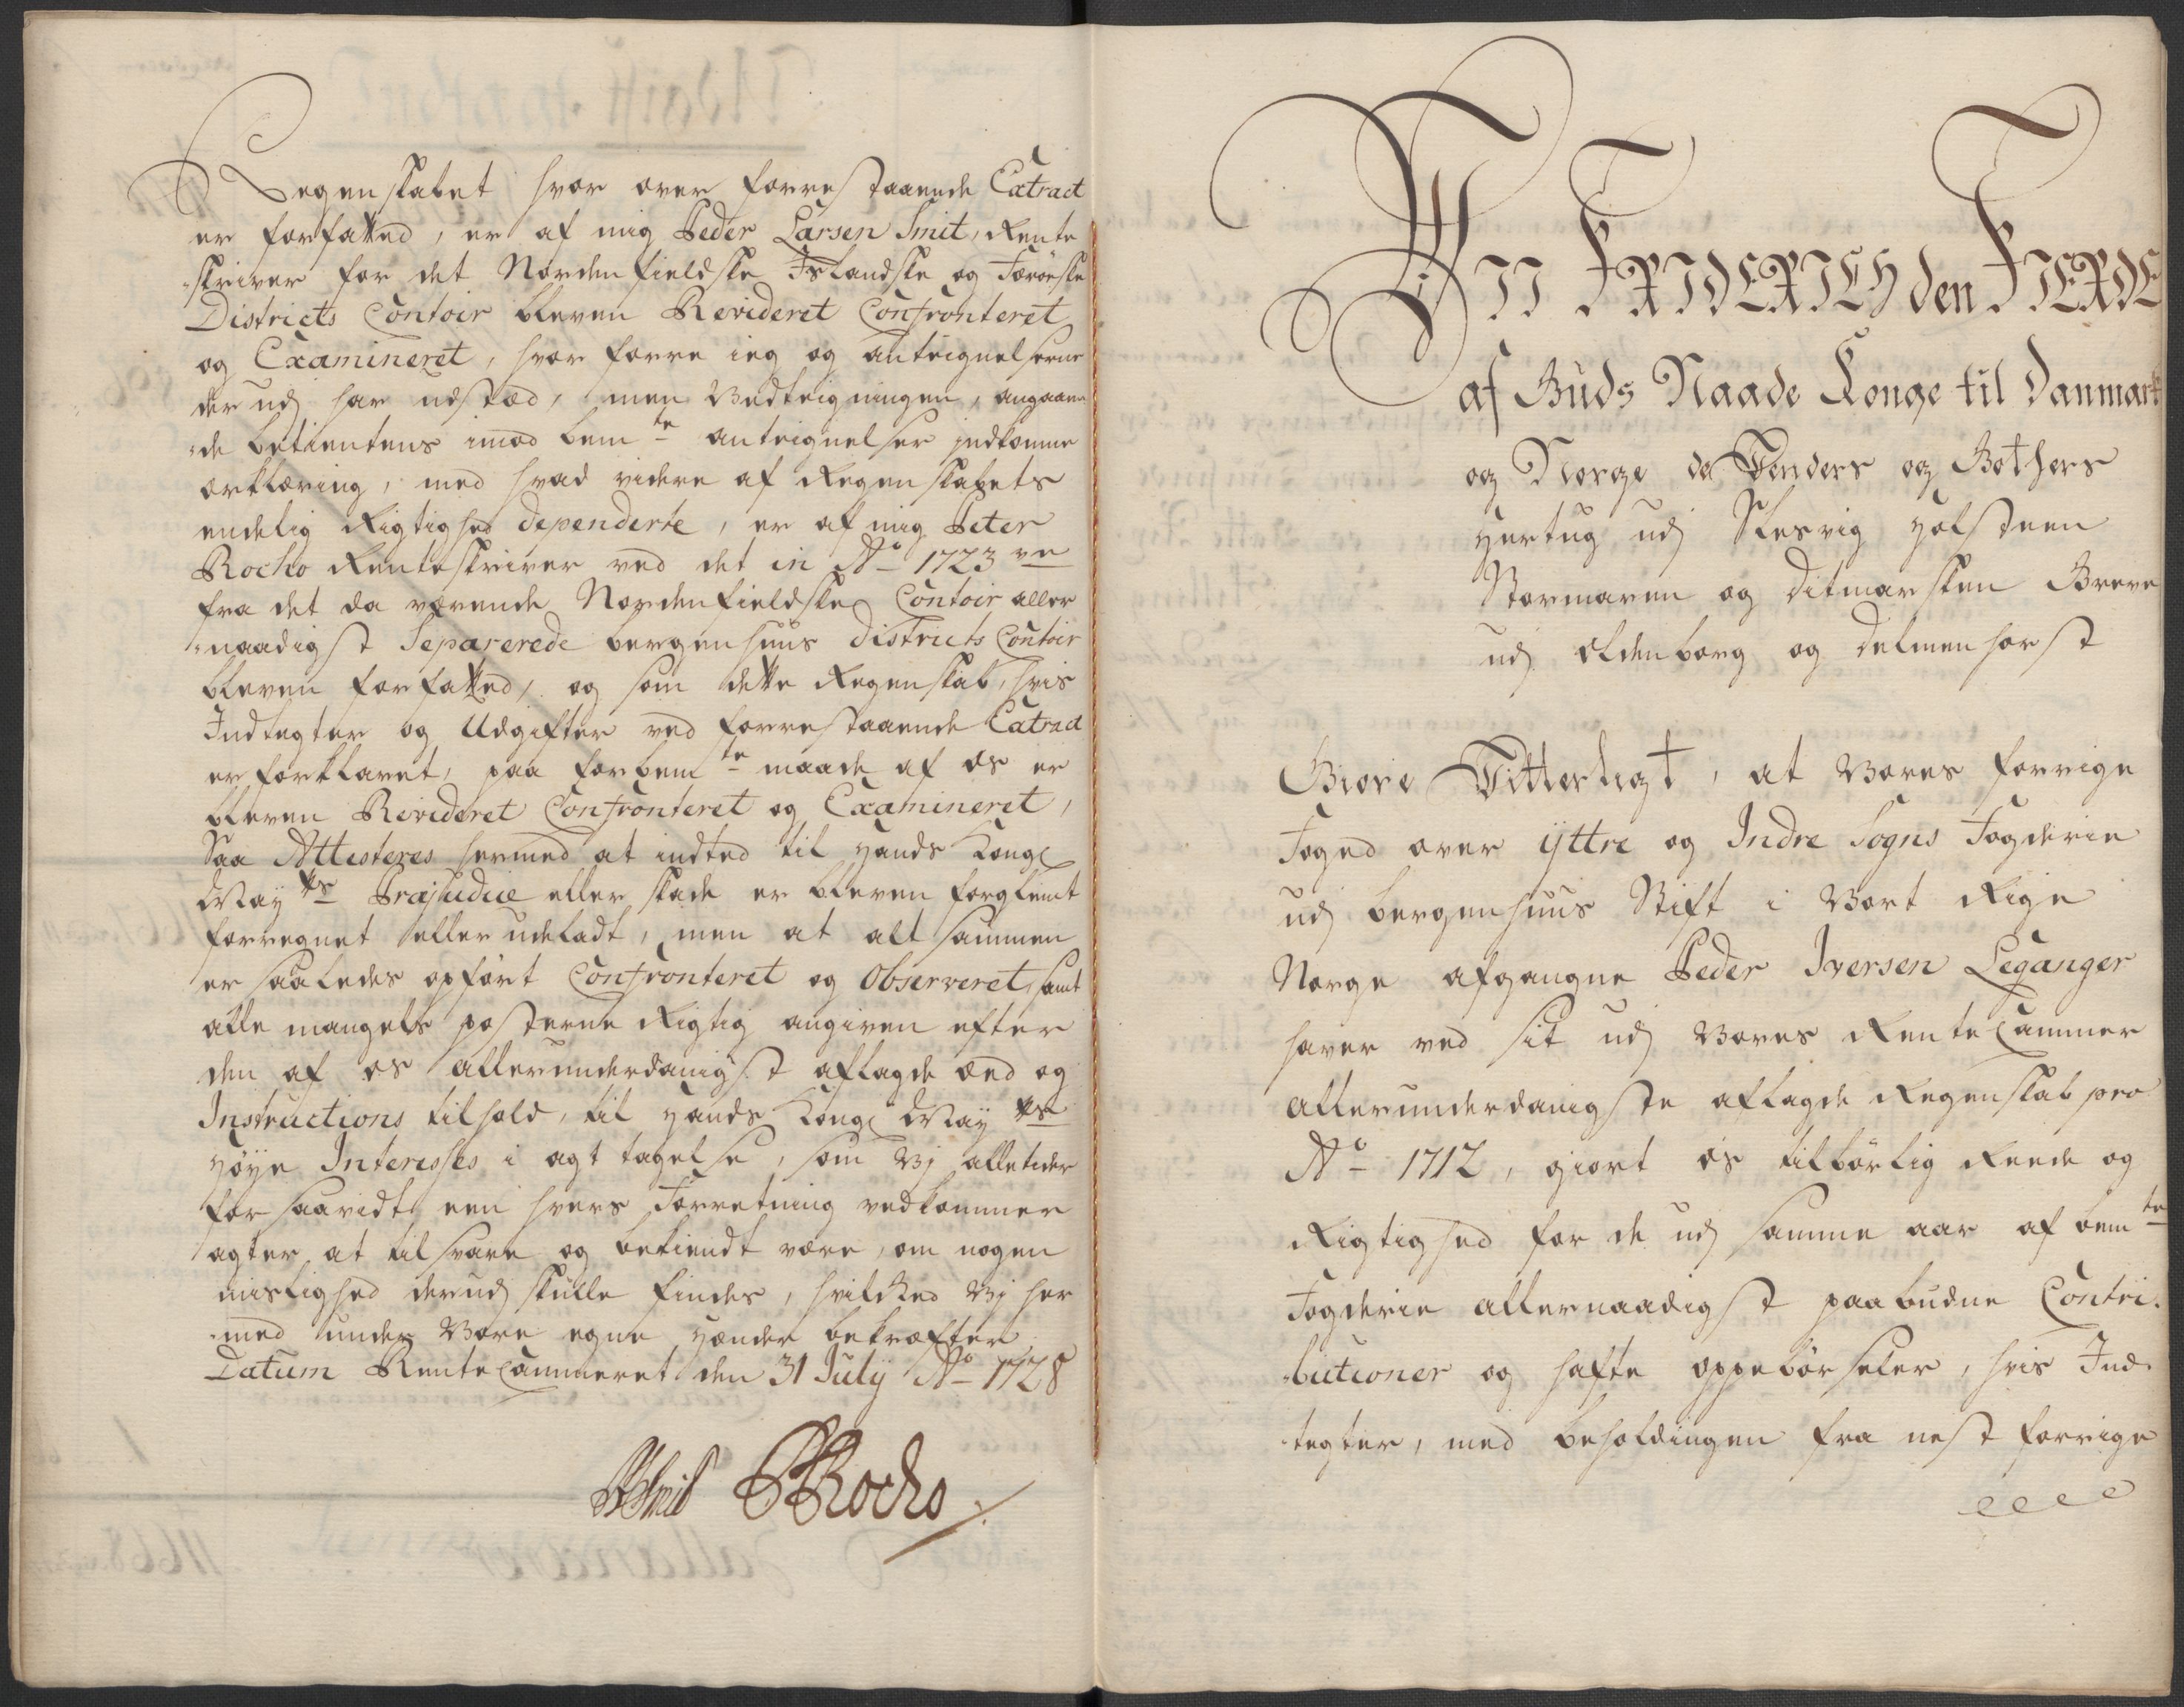 Regenskabet hvor over forrestaaende Extract
er forfatted, er af mig Peder Larsen Smit, Rente
skriver for det Nordenfieldske Islandske og Færöeske
Districts Contoir bleven Revideret Confronteret
og Examineret, hvor forre ieg og anteignelserne
der udj har udstæd, men Vedteigningen, angaaen¬
¬de betientens imod bemte anteignelser indkomne
erklæring, med hvad videre af Regenskabets
endelig Rigtighed dependerte, er af mig Peter
Rocho Renteskriver ved det in Ao 1723 ve
fra det da værende Nordenfieldske Contoir aller
¬naadigst Separerede bergenhuus Districts Contoir
bleven forfatted, og som dette Regenskab, hvis
Indtegter og Udgifter ved forrestaaende Extract
er forklaret, paa forbemte maade af os er
bleven Revideret Confronteret og Examineret,
Saa Attesteres hermed at indted til Hands Kongl
May ts Præjudice eller skade er bleven forglemt
forregnet eller udeladt, men at alt sammen
er saaledes opført Confronteret og Observeret, samt
alle mangels posterne Rigtig angiven efter
den af os allerunderdanigst aflagde Eed og
Instructions tilhold, til Hands Kongl May ts
Höye Interesses i agt tagelse, som Vj alletider
for saavidt een hvers Forretning vedkommer
agter at tilsvare og bekiendt være, om nogen
mislighed derudj skulle findes, hvilcked Vj her
¬med under Vore egne Hænder bekræfter
Datum Rente Cammeret den 31 July Ao 1728
PLSmit PRocho
WII FRIDERICH den FIERDE
af Guds Naade Konge til Danmark
og Norge de Venders og Gothers
Hertug udj Slesvig Holsteen
Stormaren og Ditmarsken Greve
udj Oldenborg og Delmenhorst
Giöre Vitterligt, at Vores forrige
Foged over yttre og Indre Sogns Fogderie
udj bergenhuus Stift i Vort Rige
Norge afgangne Peder Iversen Leganger
haver ved sit udj Vores Rente Cammer
allerunderdanigste aflagde Regenskab pro
Ao 1712, giort os tilbörlig Reede og
Rigtighed for de udj samme aar af bemte
Fogderie allernaadigst paabudne Contri¬
¬butioner og hafte oppebörseler, hvis Ind¬
¬tegter, med beholdingen fra nest forrige